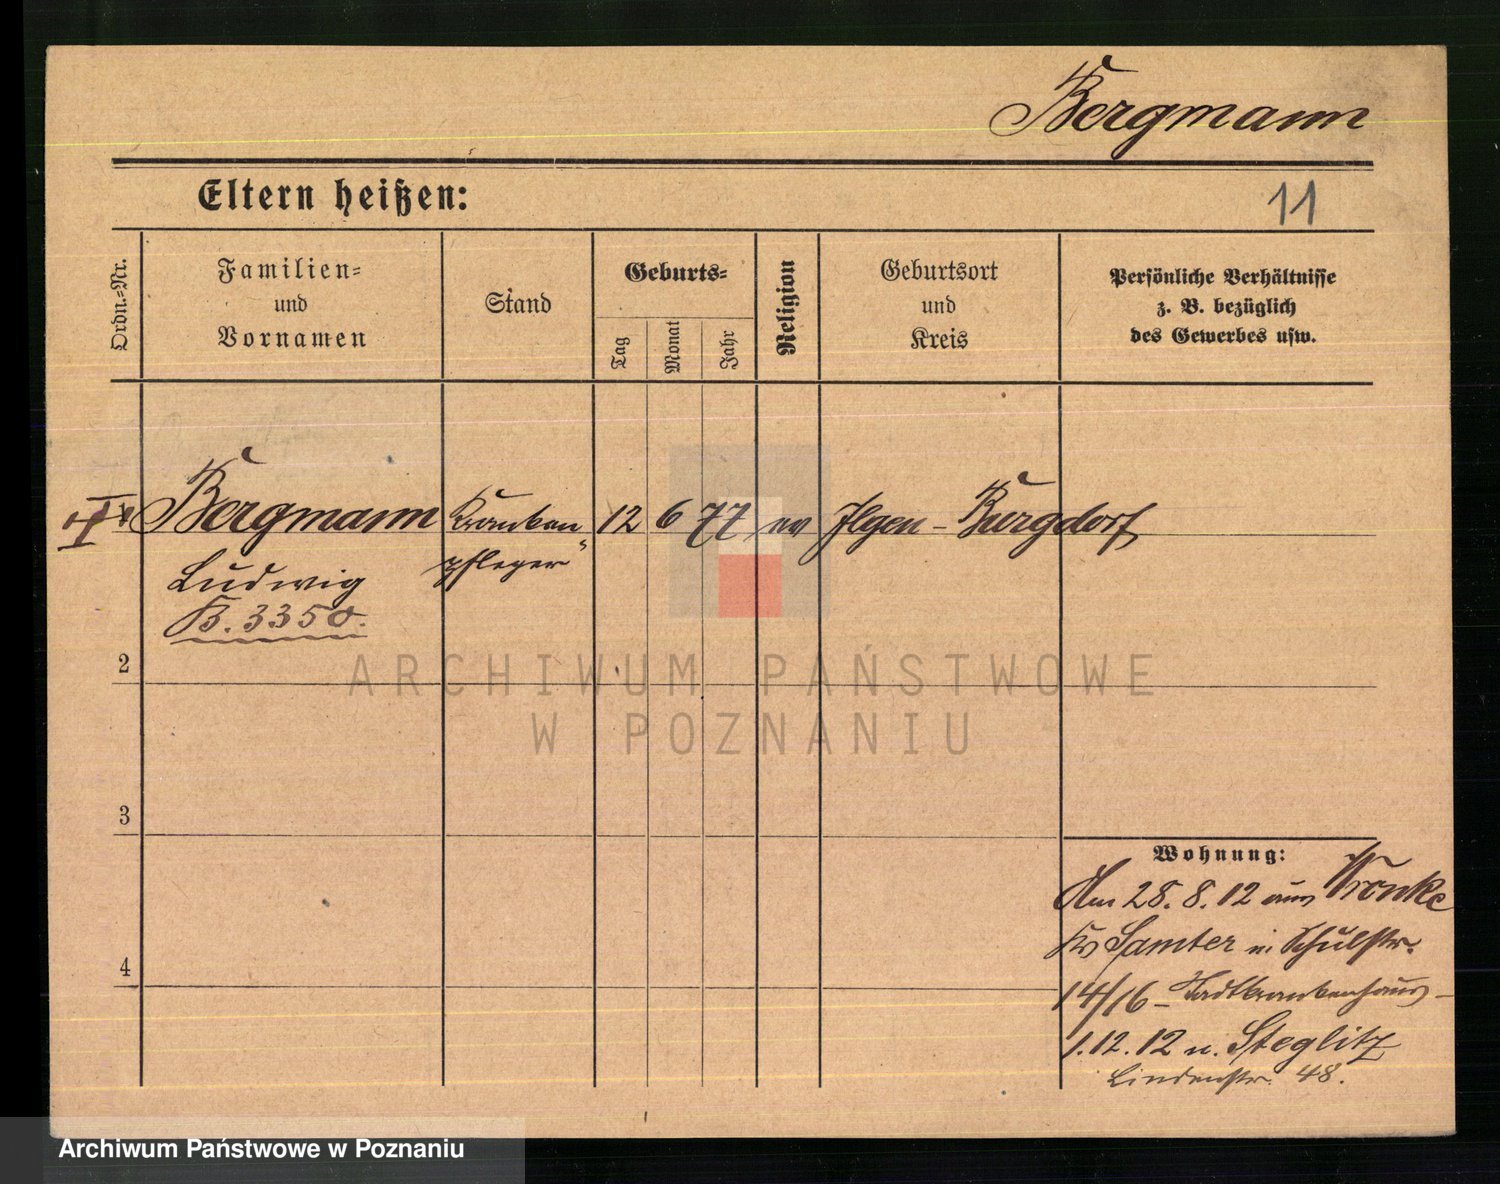 Bergmann
Eltern heißen:
11
Ordn.-Nr.
Familien-
und
Vornamen
Stand
Geburts-
Tag
Monat
Jahr
Religion
Geburtsort
und
Kreis
Persönliche Verhältnisse
z. B. bezüglich
des Gewerbes usw.
Bergmann Kranken 12 6 77 ev Ilgen - Burgdorf
Ludwig pfleger
B. 3350.
2
ARCHIWUM PAŃSTWOWE
W POZNANIU
3
Wohnung:
Am 28. 8. 12 aus Wronke
Kr Samter n. Schulstr.
4
14/16 - Stadtkrankenhaus -
1. 12. 12 n. Steglitz
Lindenstr. 48.
Archiwum Państwowe w Poznaniu